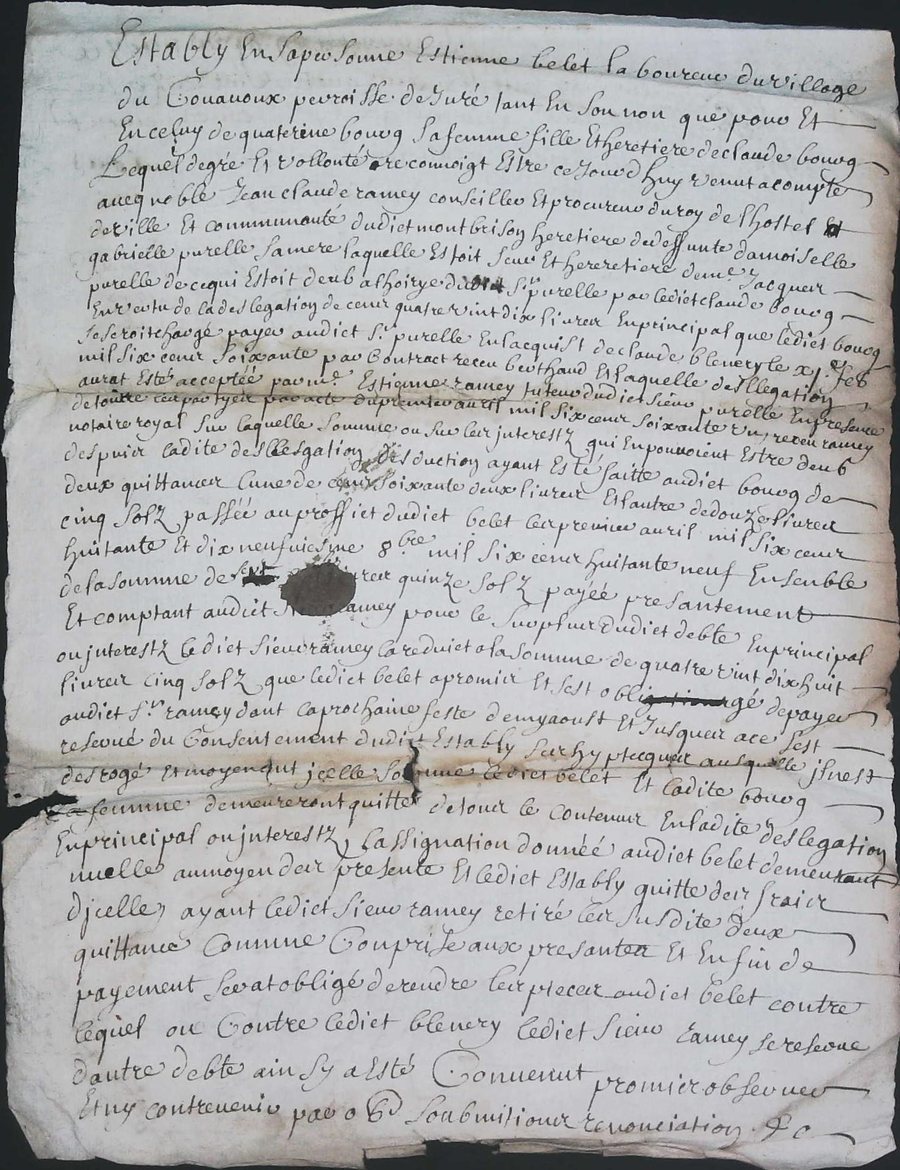 Estably En sapersonne Estienne belet laboureur du village
du Couavoux perroisse de Juré tant En son non que pour Et
En celuy de quaterine bourg sa femme fille Et heretiere de claude bourg
Lequel de gré Et vollonté reconnoigt Estre ce Jourd huy venut a compte
avecq noble Jean claude ramey conseiller Et procureur du roy de lhostel
de ville Et communauté dudict montbrison heretiere de deffunte damoiselle
gabrielle purelle sa mere laquelle Estoit seur Et hereretiere de me Jacques
purelle de ce qui Estoit deub a lhoirye du Sr purelle par ledict claude bourg
En vertu de la deslegation de cens quatre vint dix livres En principal que ledict bourg
se seroit chargé payer audict Sr purelle En lacquist de claude blenery le xje feb
mil six cens soixante par Contract receu berthaud Et laquelle deslegation
aurat Esté acceptée par me Estienne ramey tuteur dudict sieur purelle En presence
de toutte ces partyes par acte du premier avril mil six cens soixante un receu ramey
notaire royal sur laquelle somme ou sur les interestz qui En pouvoient Estre deub
despuis ladite deslesgation desduction ayant Esté faitte audict bourg de
deux quittances lune de cens soixante deux livres Et lautre de douze livres
cinq solz passée au proffict dudict belet les premier avril mil six cens
huitante Et dix neufviesme 8bre mil six cens huitante neuf Ensenble
de la somme de sept quinze solz payée presantement
Et comptant audict ramey pour le surplus dudict debte En principal
ou jnterestz ledict sieur ramey la reduict a la somme de quatre vint dix huit
livres cinq solz que ledict belet a promis Et sest obligé de payer
audict Sr ramey dans la prochaine feste de my aoust Et Jusques a ce sest
reservé du Consentement dudict Estably ses hyptecques ausquelle jl nest
desrogé Et moyenant jcelle somme ledict belet Et ladite bourg
sa femme demeureront quitte de tour le contenur En ladite deslegation
En principal ou jnterestz, lassignation donnée audict belet demeurant
nuelle au moyen des presente Et ledict Estably quitte des frais
djcelle, ayant ledict sieur ramey retiré les susdite deux
quittance Comme Conprise aux presantes Et En fin de
payement serat obligé de rendre les pieces audict belet contre
lequel ou Contre ledict blenery ledict sieur ramey se reserve
dautre debte ainsy a Esté Convenut promis observer
Et ny contrevenir par obd soubmitions renonciation &c